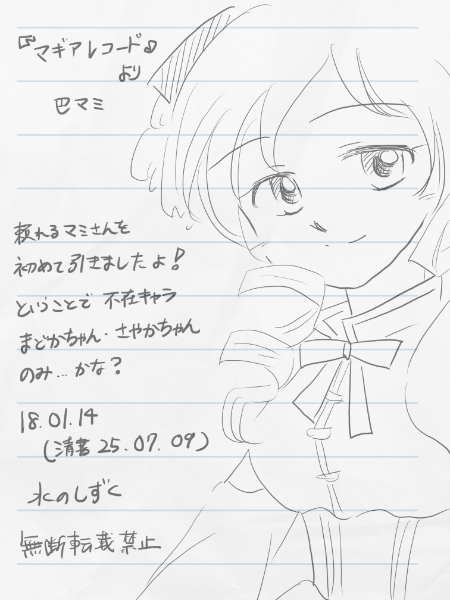 『マギアレコード』
より
巴マミ
頼れるマミさんを
初めて引きましたよ!
ということで 不在キャラ
まどかちゃん・さやかちゃん
のみ…かな?
18.01.14
(清書 25.07.09)
水のしずく
無断転載禁止